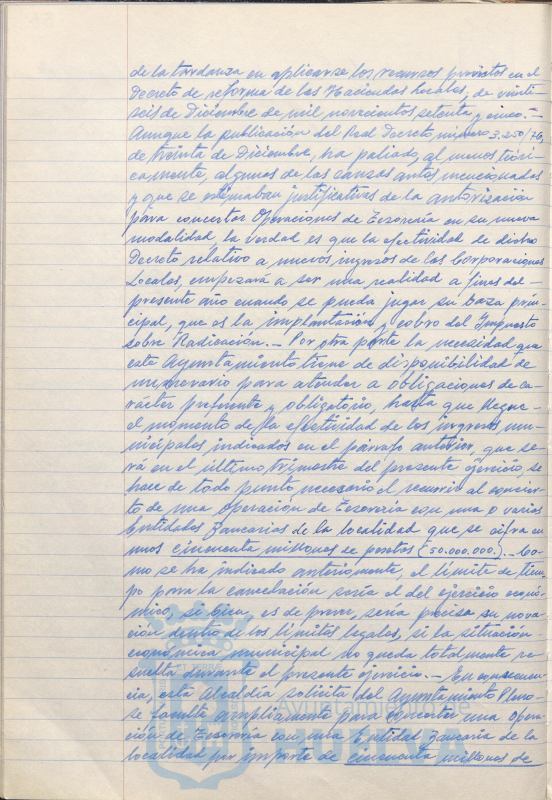 de la tardanza en aplicarse los recursos previstos en el
Decreto de reforma de las Haciendas locales, de veinti-
seis de Diciembre de mil novecientos setenta y cinco.-
Aunque la publicación del Real Decreto, número 3.250/76,
de treinta de Diciembre, ha paliado, al menos teóri-
camente, algunas de las causas antes mencionadas
y que se estimaban justificativas de la autorización
para concertar Operaciones de Tesorería en su nueva
modalidad, la verdad es que la efectividad de dicho
Decreto relativo a nuevos ingresos de las Corporaciones
Locales, empezará a ser una realidad a fines del-
presente año cuando se pueda jugar su baza prin-
cipal, que es la implantación y cobro del Impuesto
sobre Radicación.- Por otra parte la necesidad que
este Ayuntamiento tiene de disponibilidad de
numerario para atender a obligaciones de ca-
rácter preferente y obligatorio, hasta que llegue-
el momento de la efectividad de los ingresos mu-
nicipales indicados en el párrafo anterior, que se-
rá en el último trimestre del presente ejercicio, se
hace de todo punto necesario el recurrir al concier-
to de una Operación de Tesorería con una o varias
Entidades Bancarias de la localidad que se cifra en
unos cincuenta millones de pesetas (50.000.000).- Co-
mo se ha indicado anteriormente, el límite de tiem-
po para la cancelación sería el del ejercicio econó-
mico, si bien, es de prever, sería precisa su nova-
ción dentro de los límites legales, si la situación-
económica municipal no queda totalmente re-
suelta durante el presente ejercicio.- En consecuen-
cia, esta Alcaldía solicita del Ayuntamiento Pleno-
se faculte ampliamente para concertar una Opera-
ción de Tesorería con una Entidad Bancaria de la
localidad por importe de cincuenta millones de
Ayuntamiento de
HUELVA